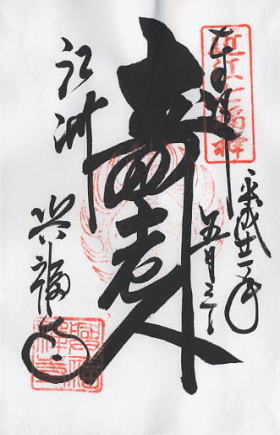 近江七福神
奉拝
平成廿二年
五月三日
壽老人
江州
興福寺